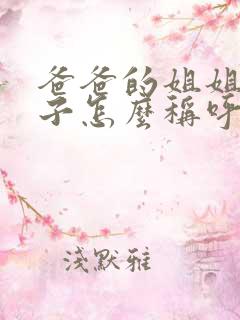 爸爸的姐姐
子怎麼稱呼
淺默雅